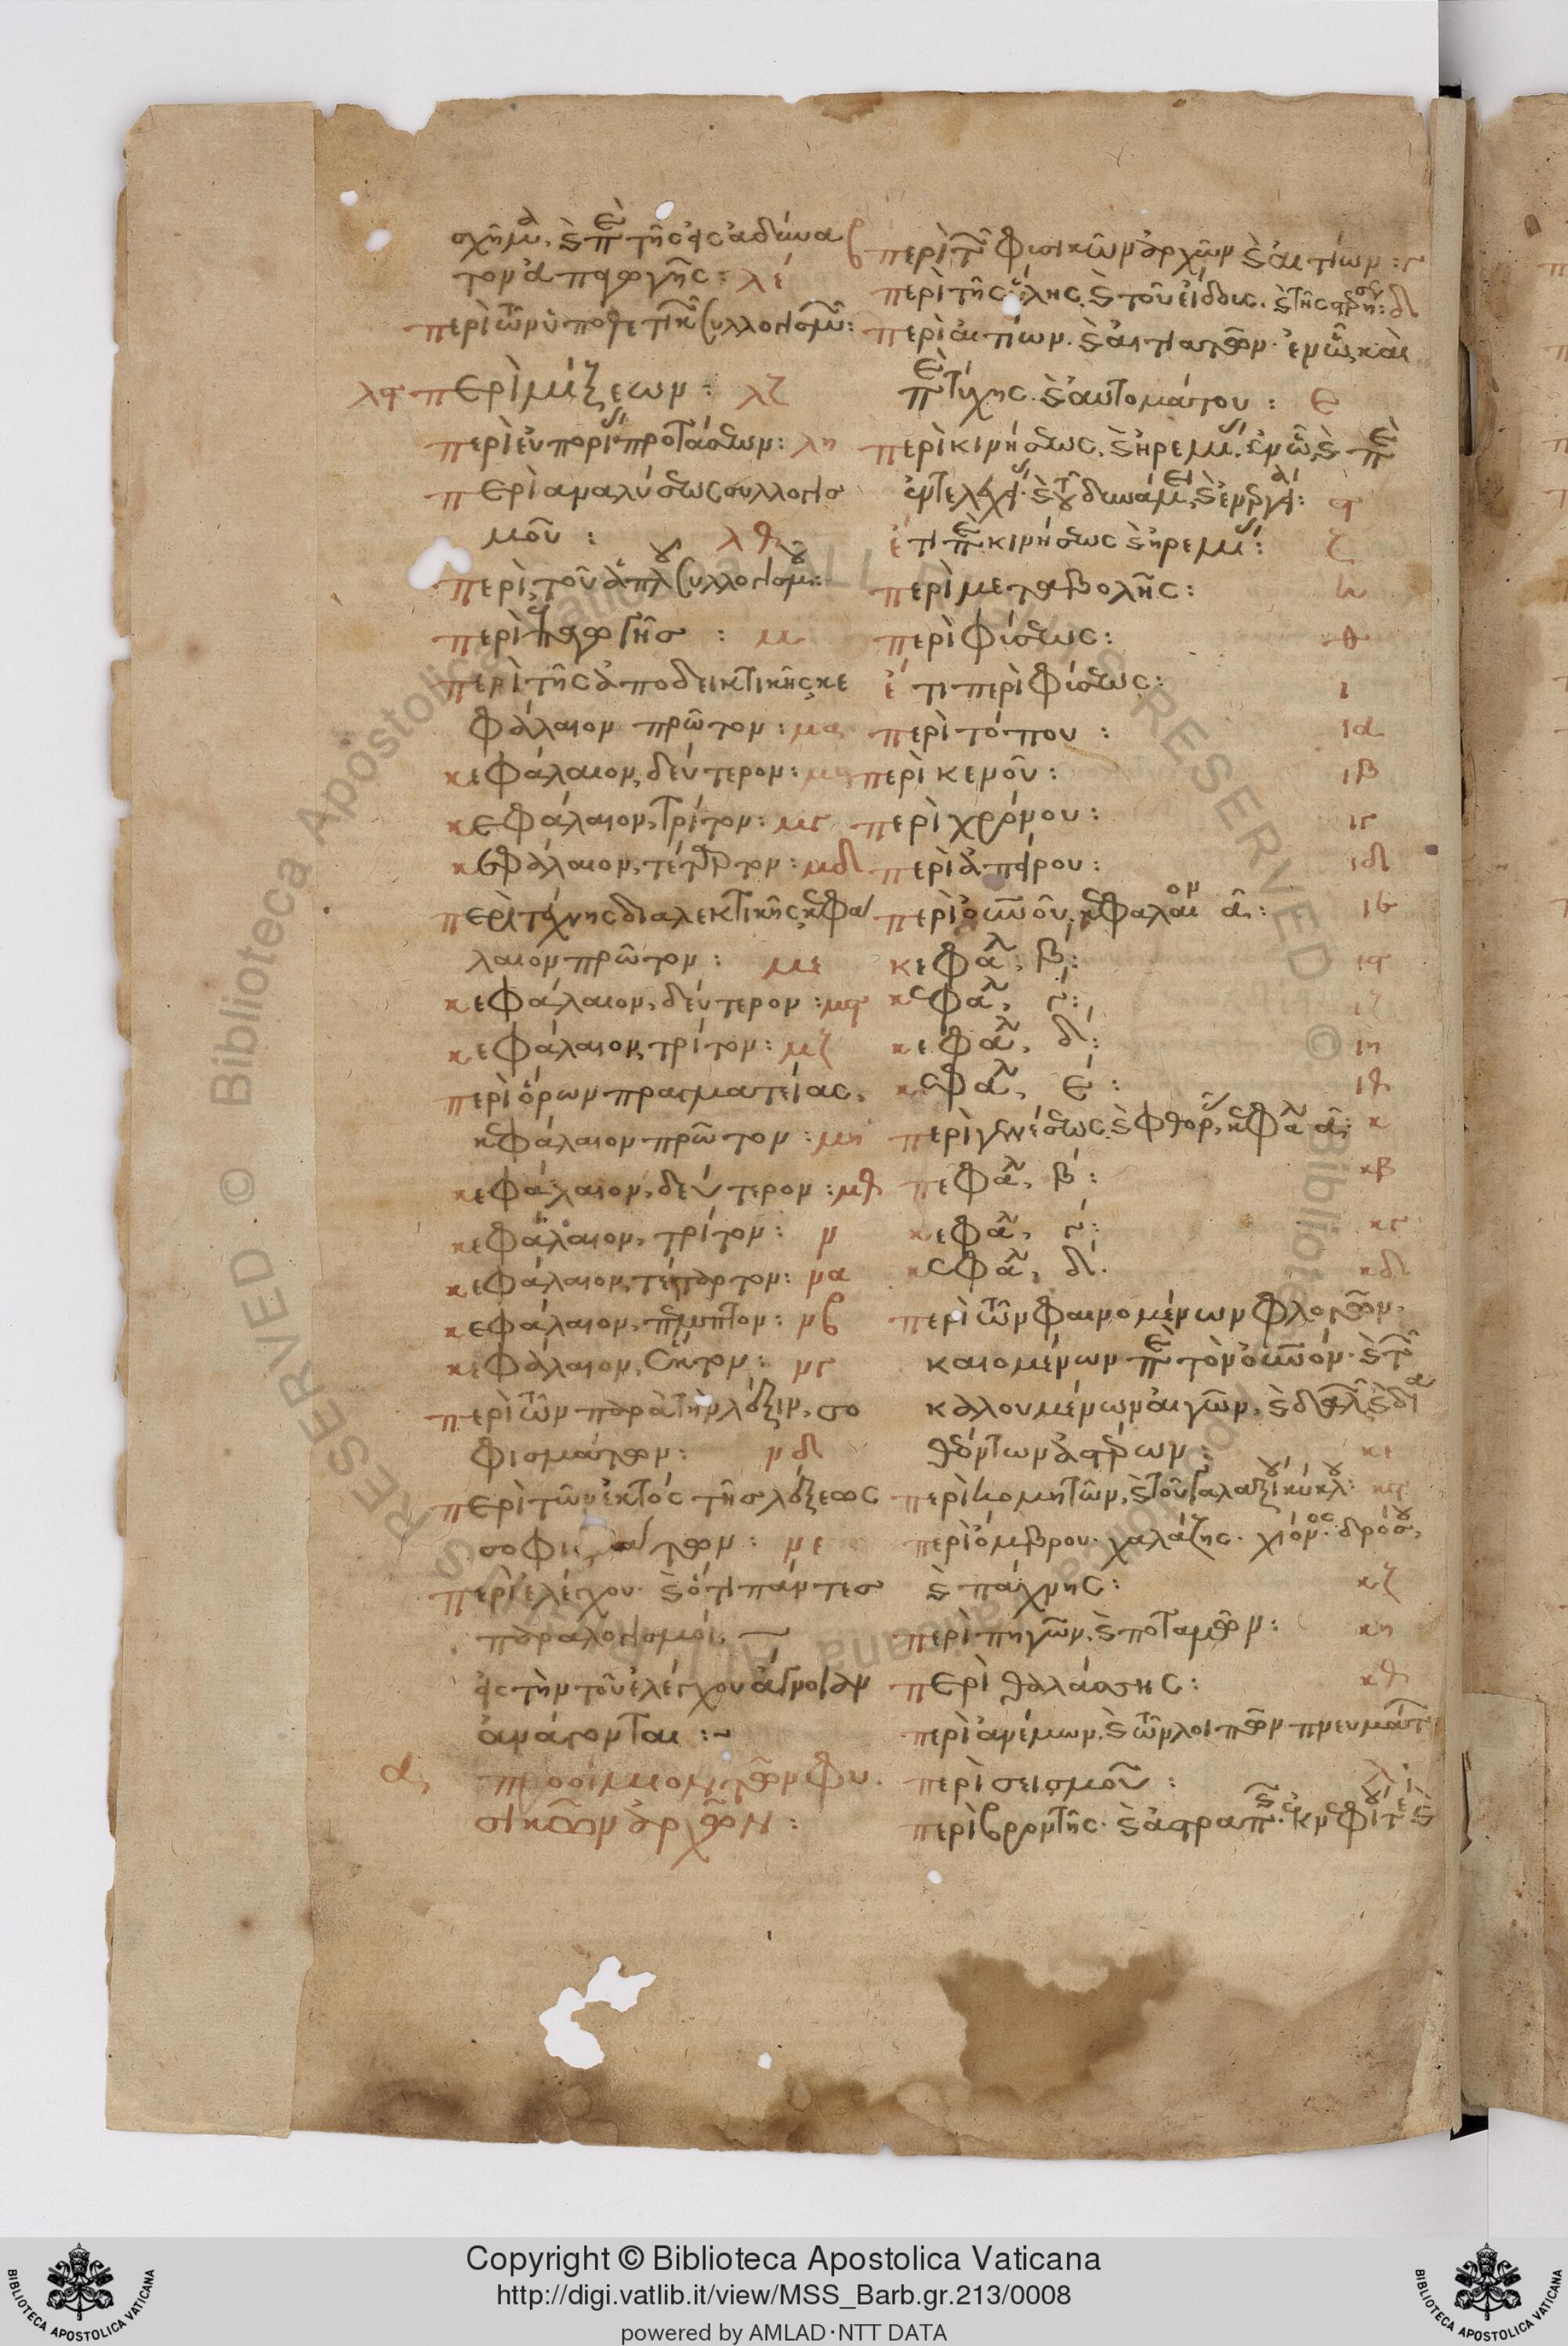 σχημα, καὶ περὶ τῆς εἰς ἀδύνα
τον ἀπαγωγῆς: λε
περὶ τῶν ὑποθετικῶν συλλογισμῶν:
λϛ περὶ μίξεων: λζ
περὶ εὐπορίας προτάσεων: λη
περὶ ἀναλύσεως συλλογισ
μοῦ: λθ
περὶ τοῦ ἁπλοῦ συλλογισμοῦ:
περὶ ἐπαγωγῆσ: μ
περὶ τῆς ἀποδεικτικῆς κε
φάλαιον πρῶτον: μα
κεφάλαιον, δεύτερον:
κεφάλαιον, τρίτον: μγ
κεφάλαιον, τέταρτον: μδ
περὶ τέχνης διαλεκτικῆς κεφά
λαιον πρῶτον: με
κεφάλαιον, δεύτερον: μϛ
κεφάλαιον, τρίτον: μζ
περὶ ὅρων πραγματείας,
κεφάλαιον πρῶτον: μη
κεφάλαιον, δεύτερον: μθ
κεφάλαιον, τρίτον: ν
κεφάλαιον, τέταρτον: να
κεφάλαιον, πέμπτον: νβ
κεφάλαιον, ἕκτον: νγ
περὶ τῶν παρὰ τὴν λέξιν, σο
φισμάτων: νδ
περὶ τῶν ἐκτὸς τῆσ λέξεως
σοφισμάτων: νε
περὶ ἐλέγχου καὶ ὅτι πάντεσ
παραλογισμοὶ
εἰς τὴν τοῦ ἐλέγχου ἄγνοιαν
ἀνάγονται:
α προοίμιον τῶν φυ
σικῶν ἀρχῶν:
β περὶ τῶν φυσικῶν ἀρχῶν καὶ αἰτίων: γ
περὶ τῆς ὕλης καὶ τοῦ εἴδους. καὶ τῆς στερήσεως: δ
περὶ αἰτίων. καὶ αἰτιατῶν. ἐν ᾧ καὶ
περὶ τύχης. καὶ αὐτομάτου: ε
περὶ κινήσεως. καὶ ἠρεμίας. ἐν ᾧ καὶ περὶ
ἐντελεχείας. καὶ τοῦ δυνάμει, καὶ ἐνεργείᾳ: ϛ
ἔτι περὶ κινήσεως καὶ ἠρεμίας: ζ
περὶ μεταβολῆς: η
περὶ φύσεως: θ
ἔτι περὶ φύσεως: ι
περὶ τόπου: ια
περὶ κενοῦ: ιβ
περὶ χρόνου: ιγ
περὶ ἀπείρου: ιδ
περὶ οὐρανοῦ. κεφάλαιον α: ιε
κεφάλ, β: ιϛ
κεφάλ, γ: ιζ
κεφάλ, δ: ιη
κεφάλ, ε: ιθ
περὶ γενέσεως καὶ φθορᾶς, κεφάλ α: κ
κεφάλ, β: κβ
κεφάλ, γ: κγ
κεφάλ, δ. κδ
περὶ τῶν φαινομένων φλογῶν,
καιομένων περὶ τὸν οὐρανόν. καὶ τῶν
καλουμένων αἰγῶν, καὶ δαλῶν καὶ δια
θεόντων ἀστέρων: κε
περὶ κομητῶν, καὶ τοῦ γαλαξίου κύκλου: κϛ
περὶ ὄμβρου. χαλάζης. χιόνος. δρόσου,
καὶ πάχνης: κζ
περὶ πηγῶν, καὶ ποταμῶν: κη
περὶ θαλάσσης: κθ
περὶ ἀνέμων, καὶ τῶν λοιπῶν πνευμάτων
περὶ σεισμοῦ: λ
περὶ βροντῆς. καὶ ἀστραπῆς.
Copyright © Biblioteca Apostolica Vaticana
http://digi.vatlib.it/view/MSS_Barb.gr.213/0008
powered by AMLAD·NTT DATA
BIBLIOTECA APOSTOLICA VATICANA
BIBLIOTECA APOSTOLICA VATICANA